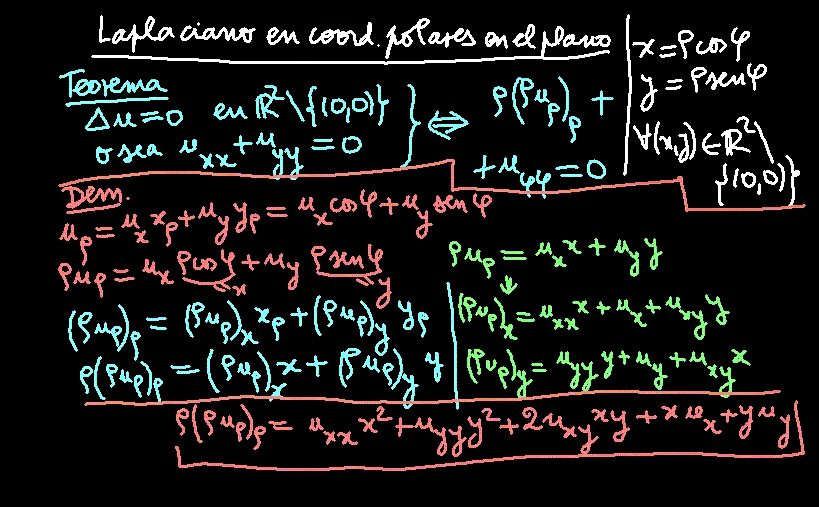 Laplaciano en coord. polares en el plano
x = ρcosφ
y = ρsenφ
∀(x,y) ∈ ℝ²\{(0,0)}
Teorema
Δu = 0 en ℝ²\{(0,0)}
o sea u_xx + u_yy = 0
⇔ ρ(ρu_ρ)_ρ +
+ u_φφ = 0
Dem.
u_ρ = u_x x_ρ + u_y y_ρ = u_x cosφ + u_y senφ
ρu_ρ = u_x ρcosφ + u_y ρsenφ
= x = y
(ρu_ρ)_ρ = (ρu_ρ)_x x_ρ + (ρu_ρ)_y y_ρ
ρ(ρu_ρ)_ρ = (ρu_ρ)_x x + (ρu_ρ)_y y
ρu_ρ = u_x x + u_y y
↓
(ρu_ρ)_x = u_xx x + u_x + u_xy y
(ρu_ρ)_y = u_yy y + u_y + u_xy x
ρ(ρu_ρ)_ρ = u_xx x² + u_yy y² + 2u_xy xy + x u_x + y u_y